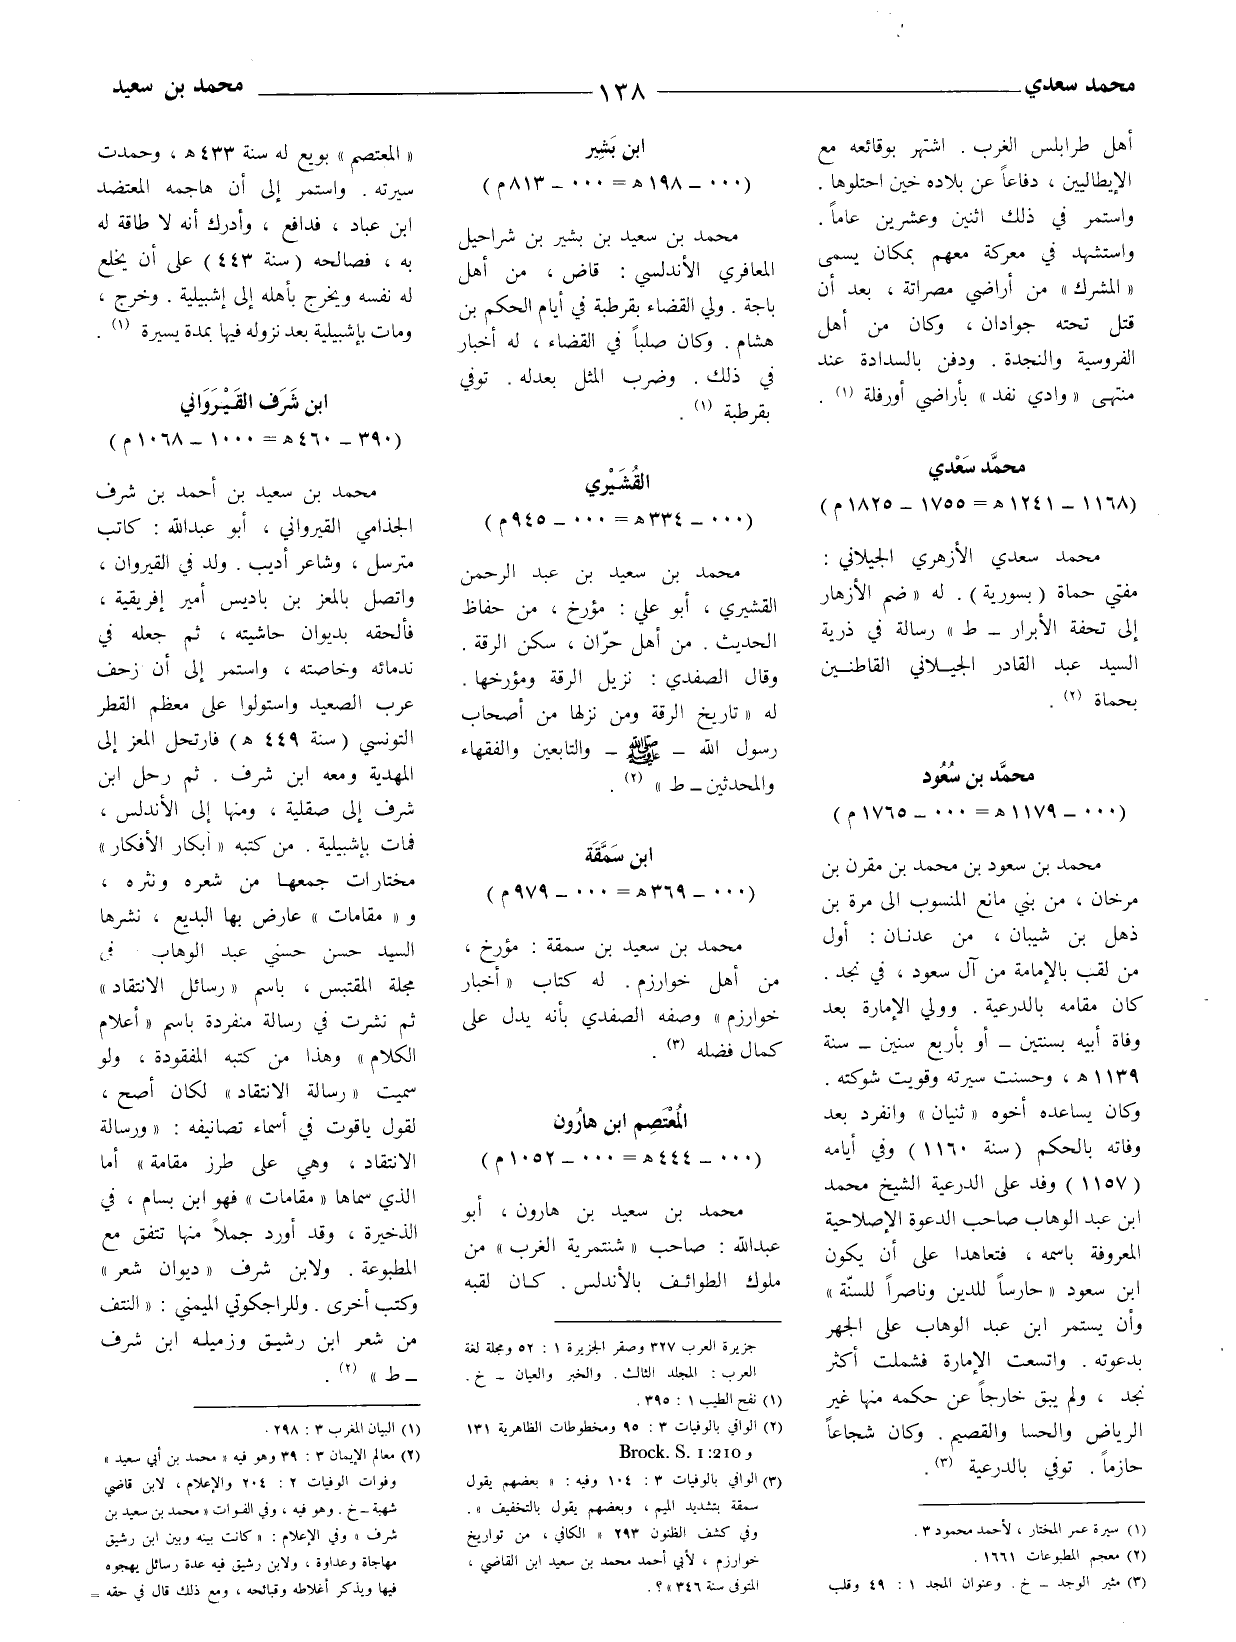 محمد سعدي
١٣٨
محمد بن سعيد
أهل طرابلس الغرب . اشتهر بوقائعه مع
الإيطاليين ، دفاعاً عن بلاده خين احتلوها .
واستمر في ذلك اثنين وعشرين عاماً .
واستشهد في معركة معهم بمكان يسمى
« المشرك » من أراضي مصراتة ، بعد أن
قتل تحته جوادان ، وكان من أهل
الفروسية والنجدة . ودفن بالسدادة عند
منتهى « وادي نفد » بأراضي أورفلة (١) .
محمَّد سَعْدي
(١١٦٨ – ١٢٤١ هـ = ١٧٥٥ – ١٨٢٥ م)
محمد سعدي الأزهري الجيلاني :
مفتي حماة (بسورية) . له « ضم الأزهار
إلى تحفة الأبرار – ط » رسالة في ذرية
السيد عبد القادر الجيلاني القاطنين
بحماة (٢) .
محمَّد بن سُعُود
(٠٠٠ – ١١٧٩ هـ = ٠٠٠ – ١٧٦٥ م)
محمد بن سعود بن محمد بن مقرن بن
مرخان ، من بني مانع المنسوب الى مرة بن
ذهل بن شيبان ، من عدنان : أول
من لقب بالإمامة من آل سعود ، في نجد .
كان مقامه بالدرعية . وولي الإمارة بعد
وفاة أبيه بسنتين – أو بأربع سنين – سنة
١١٣٩ هـ ، وحسنت سيرته وقويت شوكته .
وكان يساعده أخوه « ثنيان » وانفرد بعد
وفاته بالحكم (سنة ١١٦٠) وفي أيامه
(١١٥٧) وفد على الدرعية الشيخ محمد
ابن عبد الوهاب صاحب الدعوة الإصلاحية
المعروفة باسمه ، فتعاهدا على أن يكون
ابن سعود « حارساً للدين وناصراً للسنّة »
وأن يستمر ابن عبد الوهاب على الجهر
بدعوته . واتسعت الإمارة فشملت أكثر
نجد ، ولم يبق خارجاً عن حكمه منها غير
الرياض والحسا والقصيم . وكان شجاعاً
حازماً . توفي بالدرعية (٣) .
(١) سيرة عمر المختار ، لأحمد محمود ٣ .
(٢) معجم المطبوعات ١٦٦١ .
(٣) مثير الوجد – خ . وعنوان المجد ١ : ٤٩ وقلب
ابن بَشِير
(٠٠٠ – ١٩٨ هـ = ٠٠٠ – ٨١٣ م)
محمد بن سعيد بن بشير بن شراحيل
المعافري الأندلسي : قاض ، من أهل
باجة . ولي القضاء بقرطبة في أيام الحكم بن
هشام . وكان صلباً في القضاء ، له أخبار
في ذلك . وضرب المثل بعدله . توفي
بقرطبة (١) .
القُشَيْري
(٠٠٠ – ٣٣٤ هـ = ٠٠٠ – ٩٤٥ م)
محمد بن سعيد بن عبد الرحمن
القشيري ، أبو علي : مؤرخ ، من حفاظ
الحديث . من أهل حرّان ، سكن الرقة .
وقال الصفدي : نزيل الرقة ومؤرخها .
له « تاريخ الرقة ومن نزلها من أصحاب
رسول الله – ﷺ – والتابعين والفقهاء
والمحدثين – ط » (٢) .
ابن سَمَّقَة
(٠٠٠ – ٣٦٩ هـ = ٠٠٠ – ٩٧٩ م)
محمد بن سعيد بن سمقة : مؤرخ ،
من أهل خوارزم . له كتاب « أخبار
خوارزم » وصفه الصفدي بأنه يدل على
كمال فضله (٣) .
المُعْتَصِم ابن هارُون
(٠٠٠ – ٤٤٤ هـ = ٠٠٠ – ١٠٥٢ م)
محمد بن سعيد بن هارون ، أبو
عبدالله : صاحب « شنتمرية الغرب » من
ملوك الطوائف بالأندلس . كان لقبه
جزيرة العرب ٣٢٧ وصقر الجزيرة ١ : ٥٢ ومجلة لغة
العرب : المجلد الثالث . والخبر والعيان – خ .
(١) نفح الطيب ١ : ٣٩٥ .
(٢) الوافي بالوفيات ٣ : ٩٥ ومخطوطات الظاهرية ١٣١
و Brock. S. 1:210
(٣) الوافي بالوفيات ٣ : ١٠٤ وفيه : « بعضهم يقول
سمقة بتشديد الميم ، وبعضهم يقول بالتخفيف » .
وفي كشف الظنون ٢٩٣ « الكافي ، من تواريخ
خوارزم ، لأبي أحمد محمد بن سعيد ابن القاضي ،
المتوفى سنة ٣٤٦ » ؟ .
« المعتصم » بويع له سنة ٤٣٣ هـ ، وحمدت
سيرته . واستمر إلى أن هاجمه المعتضد
ابن عباد ، فدافع ، وأدرك أنه لا طاقة له
به ، فصالحه (سنة ٤٤٣) على أن يخلع
له نفسه ويخرج بأهله إلى إشبيلية . وخرج ،
ومات بإشبيلية بعد نزوله فيها بمدة يسيرة (١) .
ابن شَرَف القَيْرَوَاني
(٣٩٠ – ٤٦٠ هـ = ١٠٠٠ – ١٠٦٨ م)
محمد بن سعيد بن أحمد بن شرف
الجذامي القيرواني ، أبو عبدالله : كاتب
مترسل ، وشاعر أديب . ولد في القيروان ،
واتصل بالمعز بن باديس أمير إفريقية ،
فألحقه بديوان حاشيته ، ثم جعله في
ندمائه وخاصته ، واستمر إلى أن زحف
عرب الصعيد واستولوا على معظم القطر
التونسي (سنة ٤٤٩ هـ) فارتحل المعز إلى
المهدية ومعه ابن شرف . ثم رحل ابن
شرف إلى صقلية ، ومنها إلى الأندلس ،
فمات بإشبيلية . من كتبه « أبكار الأفكار »
مختارات جمعها من شعره ونثره ،
و « مقامات » عارض بها البديع ، نشرها
السيد حسن حسني عبد الوهاب في
مجلة المقتبس ، باسم « رسائل الانتقاد »
ثم نشرت في رسالة منفردة باسم « أعلام
الكلام » وهذا من كتبه المفقودة ، ولو
سميت « رسالة الانتقاد » لكان أصح ،
لقول ياقوت في أسماء تصانيفه : « ورسالة
الانتقاد ، وهي على طرز مقامة » أما
الذي سماها « مقامات » فهو ابن بسام ، في
الذخيرة ، وقد أورد جملاً منها تتفق مع
المطبوعة . ولابن شرف « ديوان شعر »
وكتب أخرى . وللراجكوتي الميمني : « النتف
من شعر ابن رشيق وزميله ابن شرف
– ط » (٢) .
(١) البيان المغرب ٣ : ٢٩٨ .
(٢) معالم الإيمان ٣ : ٣٩ وهو فيه « محمد بن أبي سعيد »
وفوات الوفيات ٢ : ٢٠٤ والإعلام ، لابن قاضي
شهبة – خ . وهو فيه ، وفي الفوات « محمد بن سعيد بن
شرف » وفي الإعلام : « كانت بينه وبين ابن رشيق
مهاجاة وعداوة ، ولابن رشيق فيه عدة رسائل يهجوه
فيها ويذكر أغلاطه وقبائحه ، ومع ذلك قال في حقه =